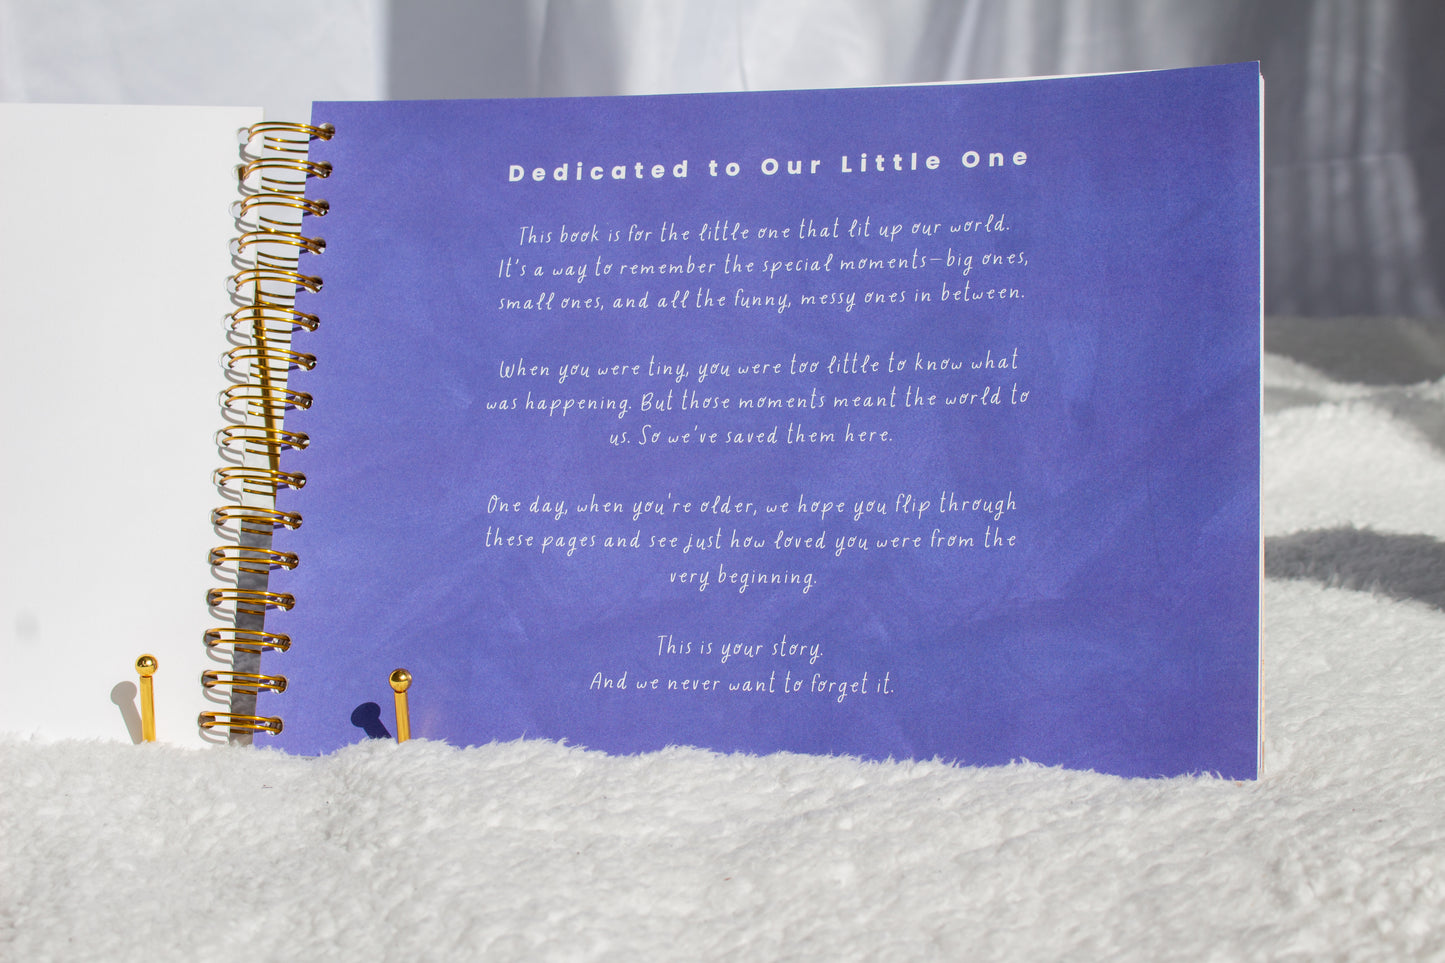 Dedicated to Our Little One
This book is for the little one that lit up our world.
It's a way to remember the special moments—big ones,
small ones, and all the funny, messy ones in between.
When you were tiny, you were too little to know what
was happening. But those moments meant the world to
us. So we've saved them here.
One day, when you're older, we hope you flip through
these pages and see just how loved you were from the
very beginning.
This is your story.
And we never want to forget it.